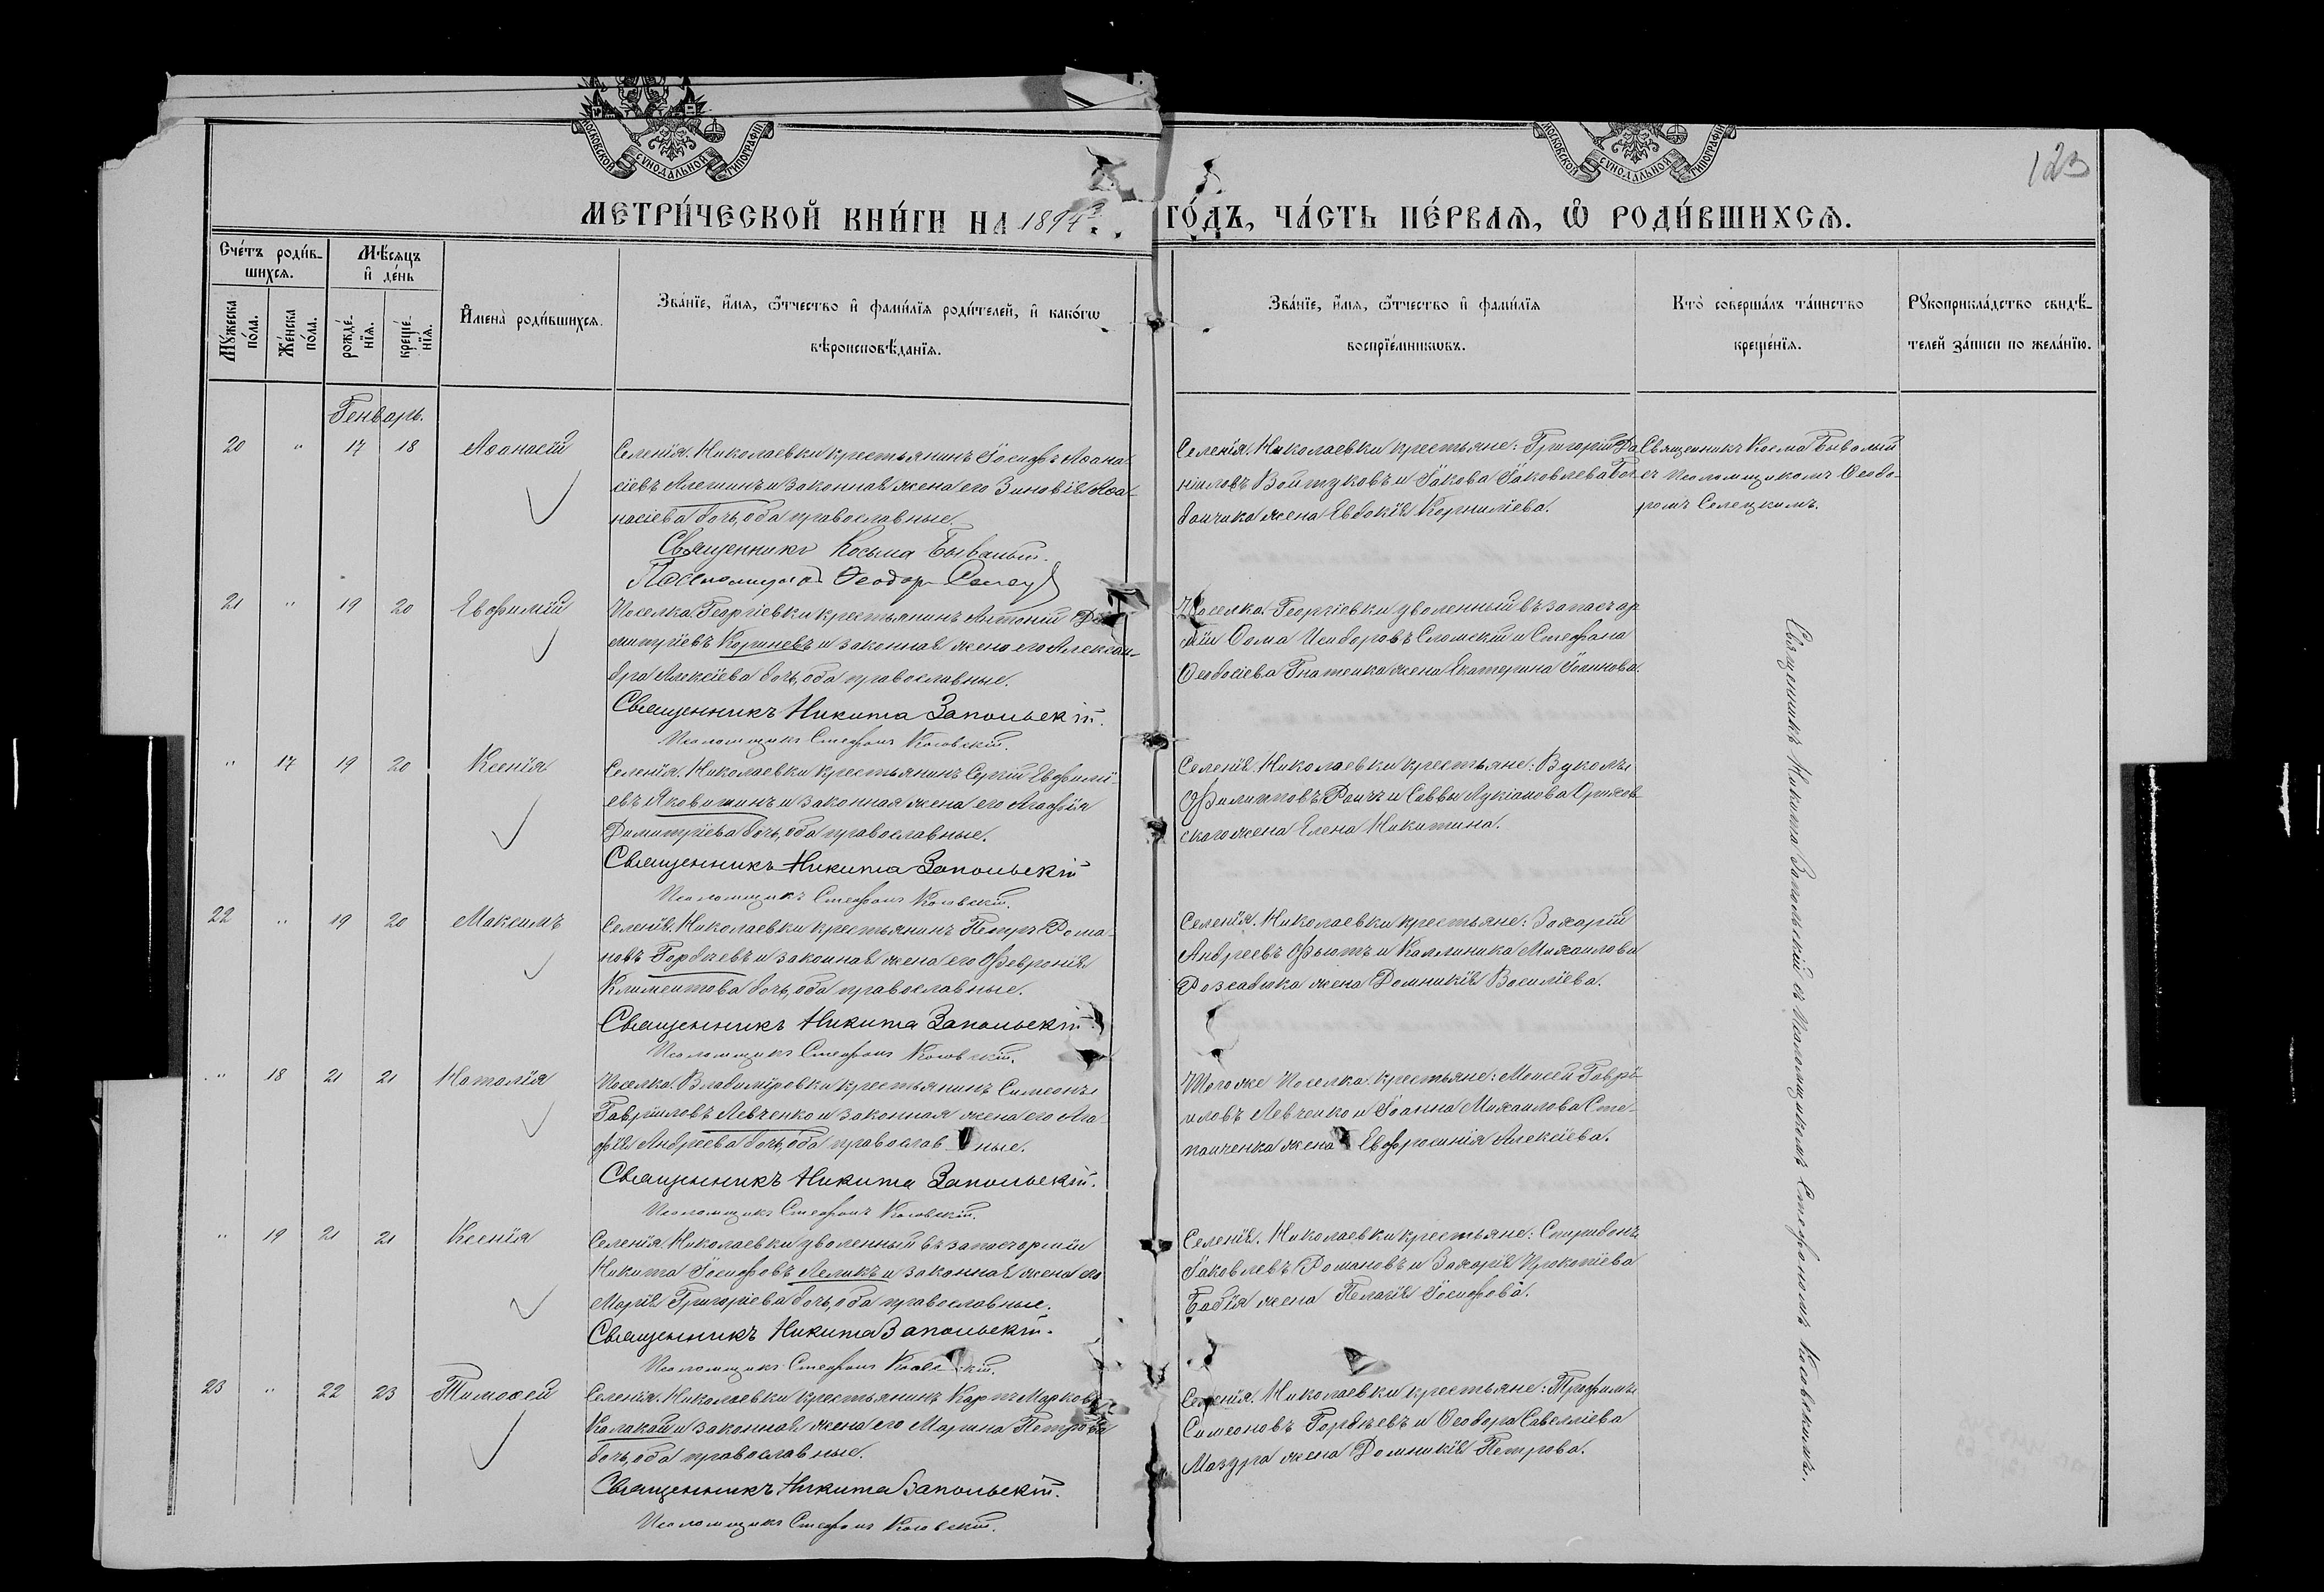 МОСКОВСКОЙ СѴНОДАЛЬНОЙ ТИПОГРАФІИ
МОСКОВСКОЙ СѴНОДАЛЬНОЙ ТИПОГРАФІИ
123
МЕТРИ́ЧЕСКОЙ КНИ́ГИ НА 1894 ГО́ДЪ, ЧА́СТЬ ПЕ́РВАѦ, Ѡ РОДИ́ВШИХСѦ.
Сче́тъ роди́в-
шихсѧ.
Мꙋ́жеска по́ла.
Же́нска по́ла.
Мѣ́сѧцъ и҆ де́нь
рожде́-нїѧ.
креще́-нїѧ.
И҆мена̀ роди́вшихсѧ.
Зва́нїе, и҆́мѧ, ѻ҆́тчество и҆ фами́лїѧ роди́телей, и҆ како́гѡ
вѣроисповѣ́данїѧ.
Зва́нїе, и҆́мѧ, ѻ҆́тчество и҆ фами́лїѧ
воспрїе́мникѡвъ.
Кто̀ соверша́лъ та́инство
креще́нїѧ.
Рꙋкоприкла́дство свидѣ́-
телей за́писи по жела́нїю.
Генварь.
20 " 17 18 Аѳанасій
Селенія Николаевки крестьянинъ Іосифъ Аѳана-
сіевъ Алешинъ и законная жена его Зиновія Аѳа-
насіева дочь, оба православные.
Священникъ Косьма Бывалый.
Псаломщикъ Ѳеодоръ Селец
Селенія Николаевки крестьяне: Григорій Да-
ніиловъ Войтуковъ и Іакова Іаковлева Бог-
данчика жена Евдокія Корнилієва.
Священникъ Косма Бывалый
съ псаломщикомъ Ѳеодо-
ромъ Селецкимъ.
21 " 19 20 Евфимій
Поселка Георгіевки крестьянинъ Антоній Ди-
митріевъ Кориневъ и законная жена его Алексан-
дра Алексіева дочь, оба православные.
Священникъ Никита Запольскій.
Псаломщикъ Стефанъ Косовскій.
Поселка Георгіевки уволенный въ запасъ ар-
міи Ѳома Исидоровъ Сломскій и Стефана
Ѳеодосіева Гнатенка жена Екатерина Іоаннова.
" 17 19 20 Ксенія
Селенія Николаевки крестьянинъ Сергій Евфимі-
евъ Яковишинъ и законная жена его Агафія
Димитріева дочь, оба православные.
Священникъ Никита Запольскій
Псаломщикъ Стефанъ Косовскій.
Селенія Николаевки крестьяне: Вукомъ
Филипповъ Раичъ и Саввы Лукіанова Оржов-
скаго жена Елена Никитина.
22 " 19 20 Максимъ
Селенія Николаевки крестьянинъ Петръ Рома-
новъ Горбачевъ и законная жена его Февронія
Климентова дочь, оба православные.
Священникъ Никита Запольскій
Псаломщикъ Стефанъ Косовскій.
Селенія Николаевки крестьяне: Захарій
Андреевъ Фьютъ и Каллиника Михаилова
жена Домникія Василіева.
" 18 21 21 Наталія
Поселка Владиміровки крестьянинъ Симеонъ
Гавріиловъ Левченко и законная жена его Ага-
фія Андреева дочь, оба православные.
Священникъ Никита Запольскій.
Псаломщикъ Стефанъ Косовскій.
Того же поселка крестьяне: Моисей Гаврі-
иловъ Левченко и Іоанна Михаилова Сте-
панченка жена Евфросинія Алексіева.
" 19 21 21 Ксенія
Селенія Николаевки уволенный въ запасъ арміи
Никита Іосифовъ Леликъ и законная жена его
Марія Григоріева дочь, оба православные.
Священникъ Никита Запольскій.
Псаломщикъ Стефанъ Косовскій.
Селенія Николаевки крестьяне: Спиридонъ
Іаковлевъ Романовъ и Захарія Прокопіева
Бабія жена Пелагія Іосифова.
23 " 22 23 Тимоѳей
Селенія Николаевки крестьянинъ Карпъ Марковъ
Калакой и законная жена его Марина Петрова
дочь, оба православные.
Священникъ Никита Запольскій.
Псаломщикъ Стефанъ Косовскій.
Селенія Николаевки крестьяне: Трофимъ
Симеоновъ Горбачевъ и Ѳеодора Савелліева
Мазура жена Домникія Петрова.
Священникъ Никита Запольскій съ псаломщикомъ Стефаномъ Косовскимъ.